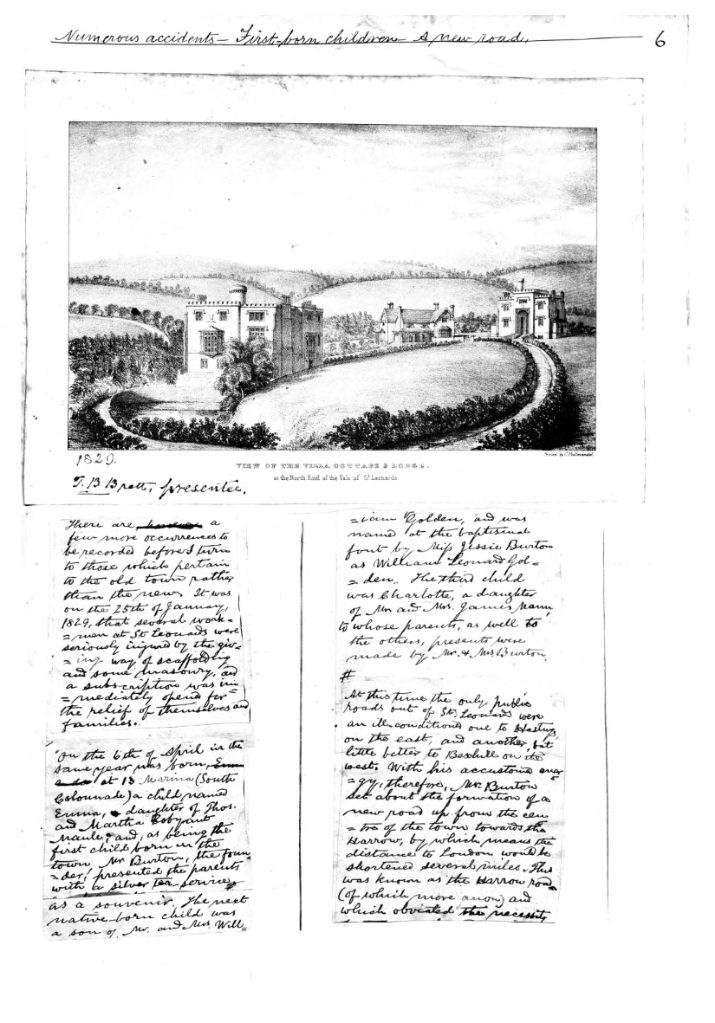 Numerous accidents — First-born children — A new road.
6
VIEW OF THE VILLA COTTAGE & LODGE.
at the North End of the Vale of St. Leonards.
1829.
T. B Brett, presenter.
There are a
few more occurrences to
be recorded before I turn
to those which pertain
to the old town rather
than the new. It was
on the 25th of January,
1829, that several work-
=men at St Leonards were
seriously injured by the giv-
=ing way of scaffolding
and some masonry, and
a subscription was im-
=mediately opend for
the relief of themselves and
families.
On the 6th of April in the
same year was born,
at 13 Marina (South
Colonnade) a child named
Emma, daughter of Thos.
and Martha
and, as being the
first child born in the
town Mr Burton, the foun-
=der, presented the parents
with a silver tea-service
as a souvenir. The next
native born child was
a son of Mr. and Mrs Will-
=iam Golden, and was
named at the baptismal
font by Miss Jessie Burton
as William Leonard Gol-
=den. The third child
was Charlotte, a daughter
of Mr and Mrs. James Mann,
to whose parents, as well to
the others, presents were
made by Mr. & Mrs Burton
#
At this time the only public
roads out of St. Leonards were
an ill-conditiond one to Hastings
on the east, and another, but
little better to Bexhill on the
west. With his accustomd ener
=gy, therefore, Mr. Burton
set about the formation of a
new road up from the cen
=tre of the town towards the
Harrow, by which means the
distance to London would be
shortened several miles. This
was known as the Harrow road
(of which more anon) and
which obviated the necessity